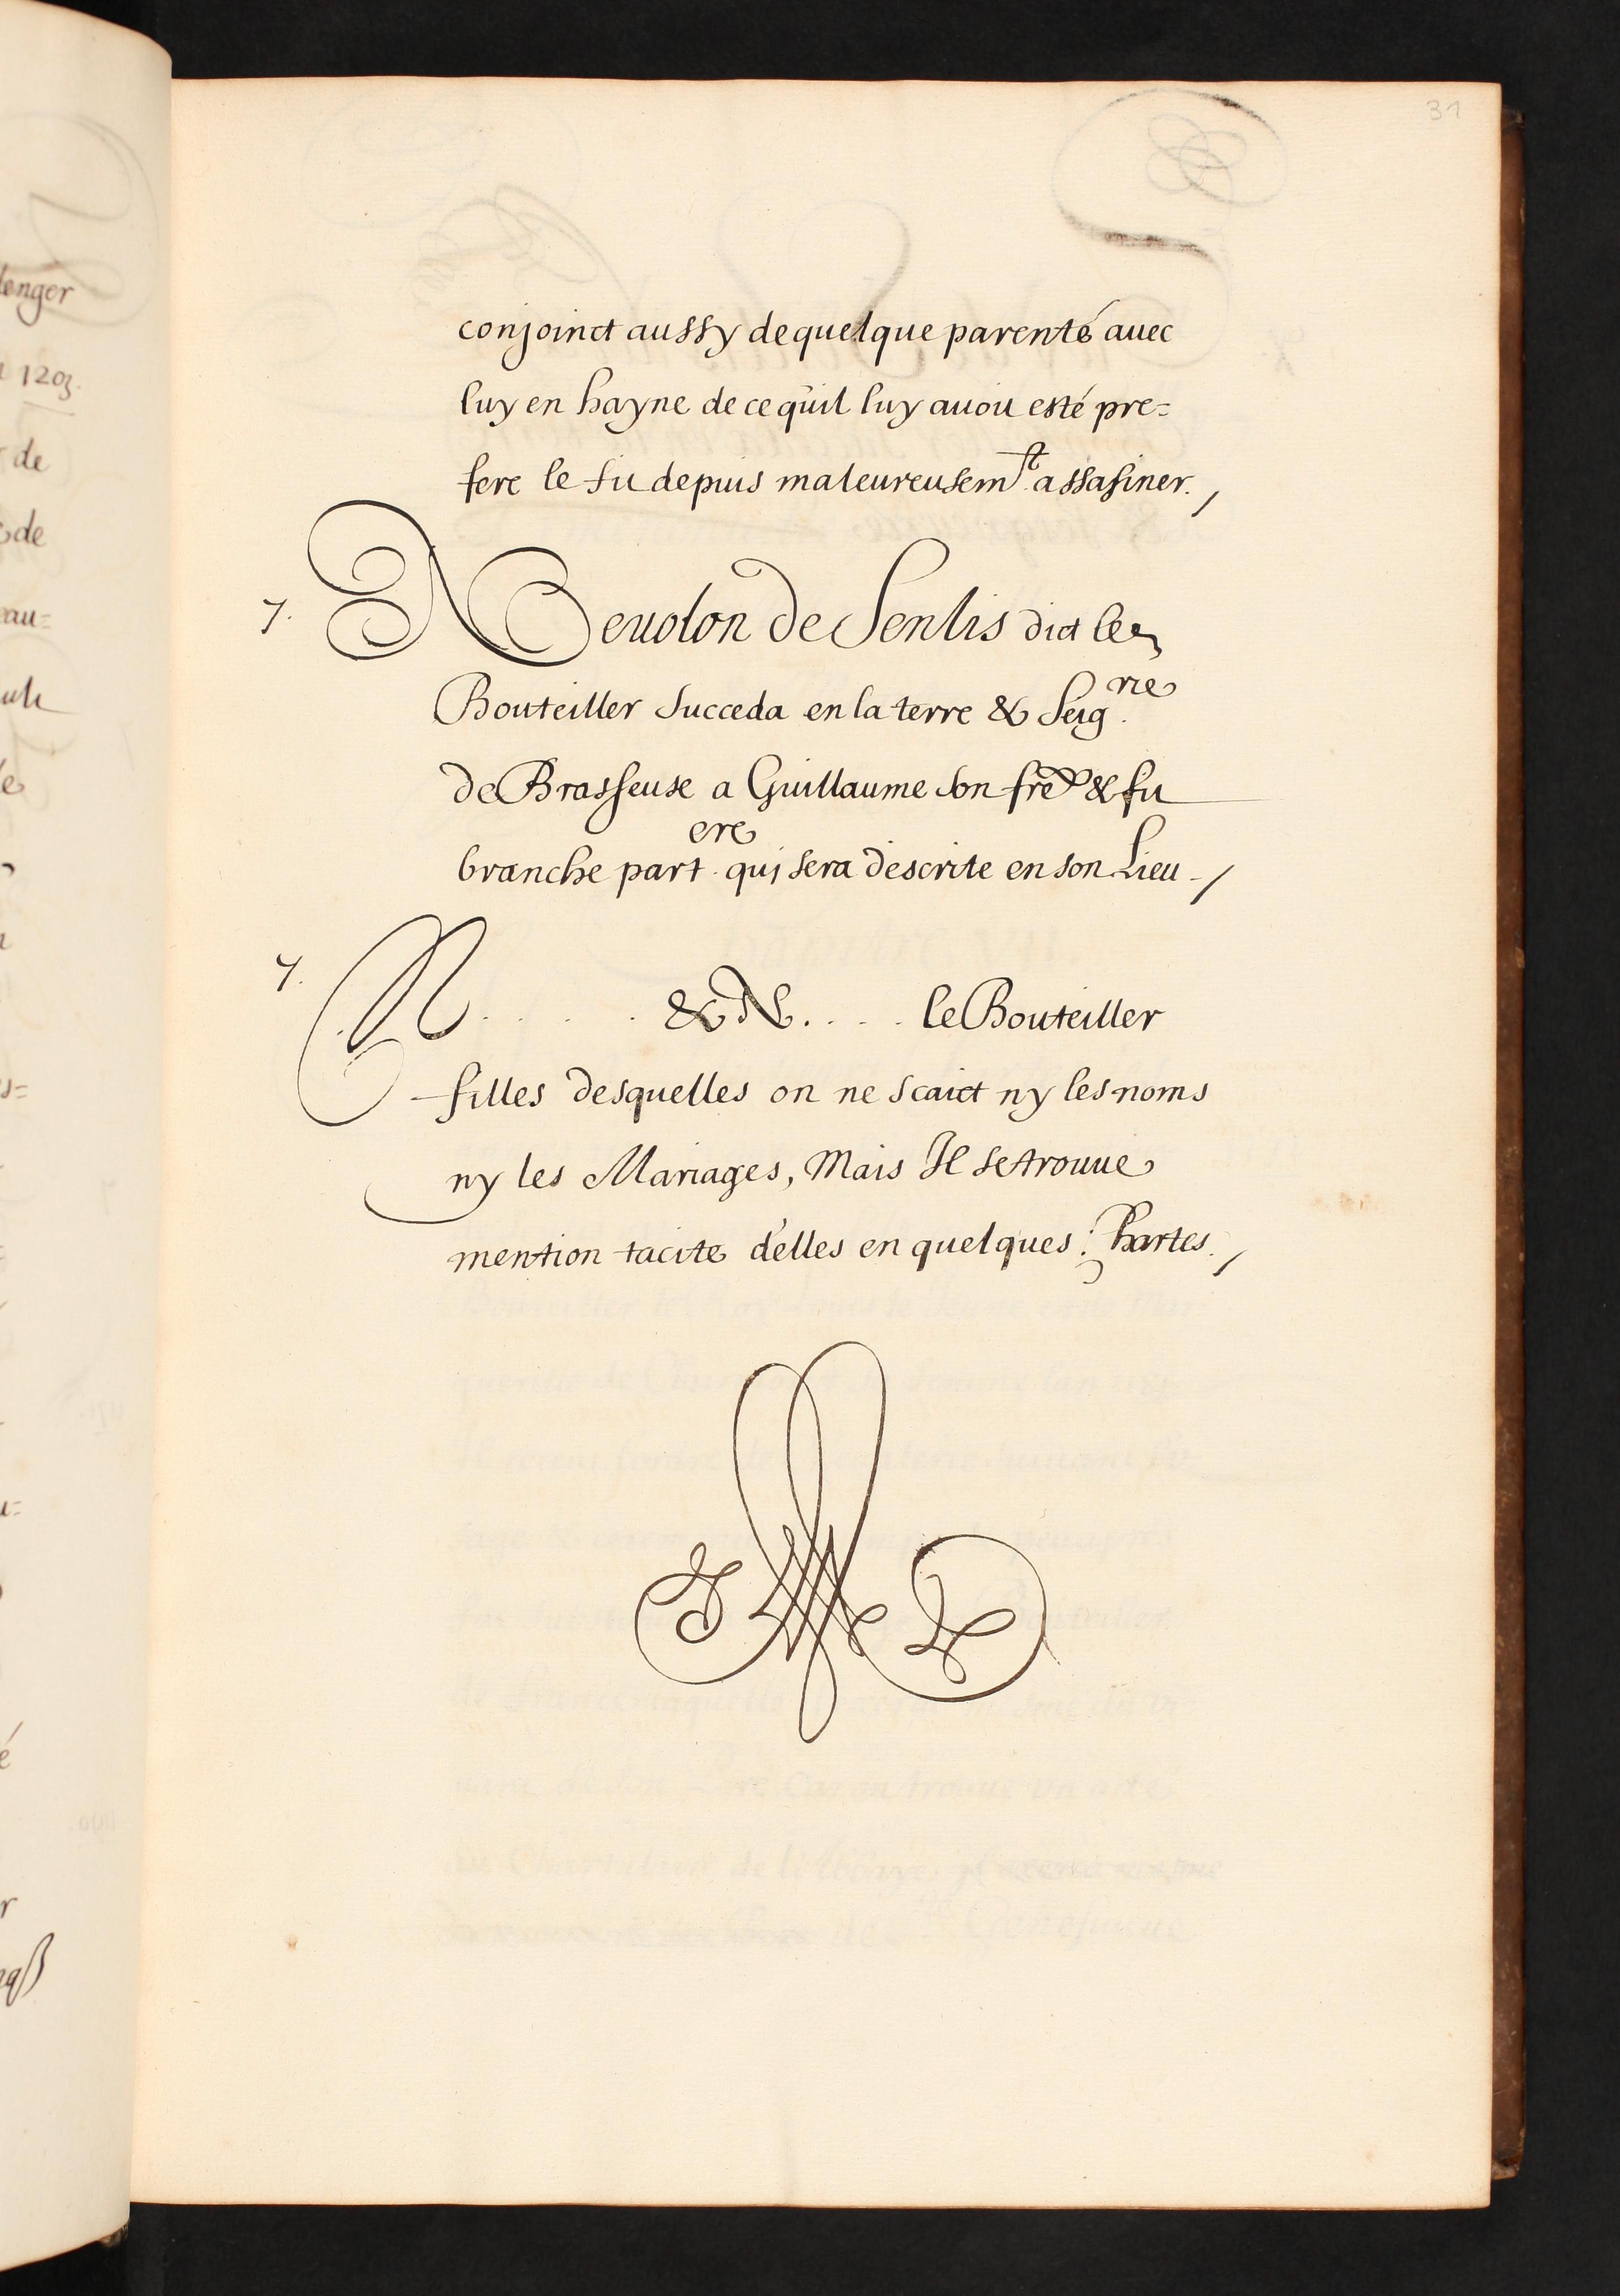 31
conjoinct aussy de quelque parenté auec
luy en hayne de ce qu'il luy auoit esté pre=
fere le fit depuis maleureusem.t assasiner. /
7. Neuolon de Senlis dict le
Bouteiller succeda en la terre & Seig.rie
de Brasseuse a Guillaume son fre & fit
branche part.ere qui sera descrite en son Lieu - /
7. N . . . . . & N. . . . . le Bouteiller
filles desquelles on ne scaict ny les noms
ny les Mariages, Mais Il se trouue
mention tacite d'elles en quelques Chartes. /
lenger
1203.
de
de
eau=